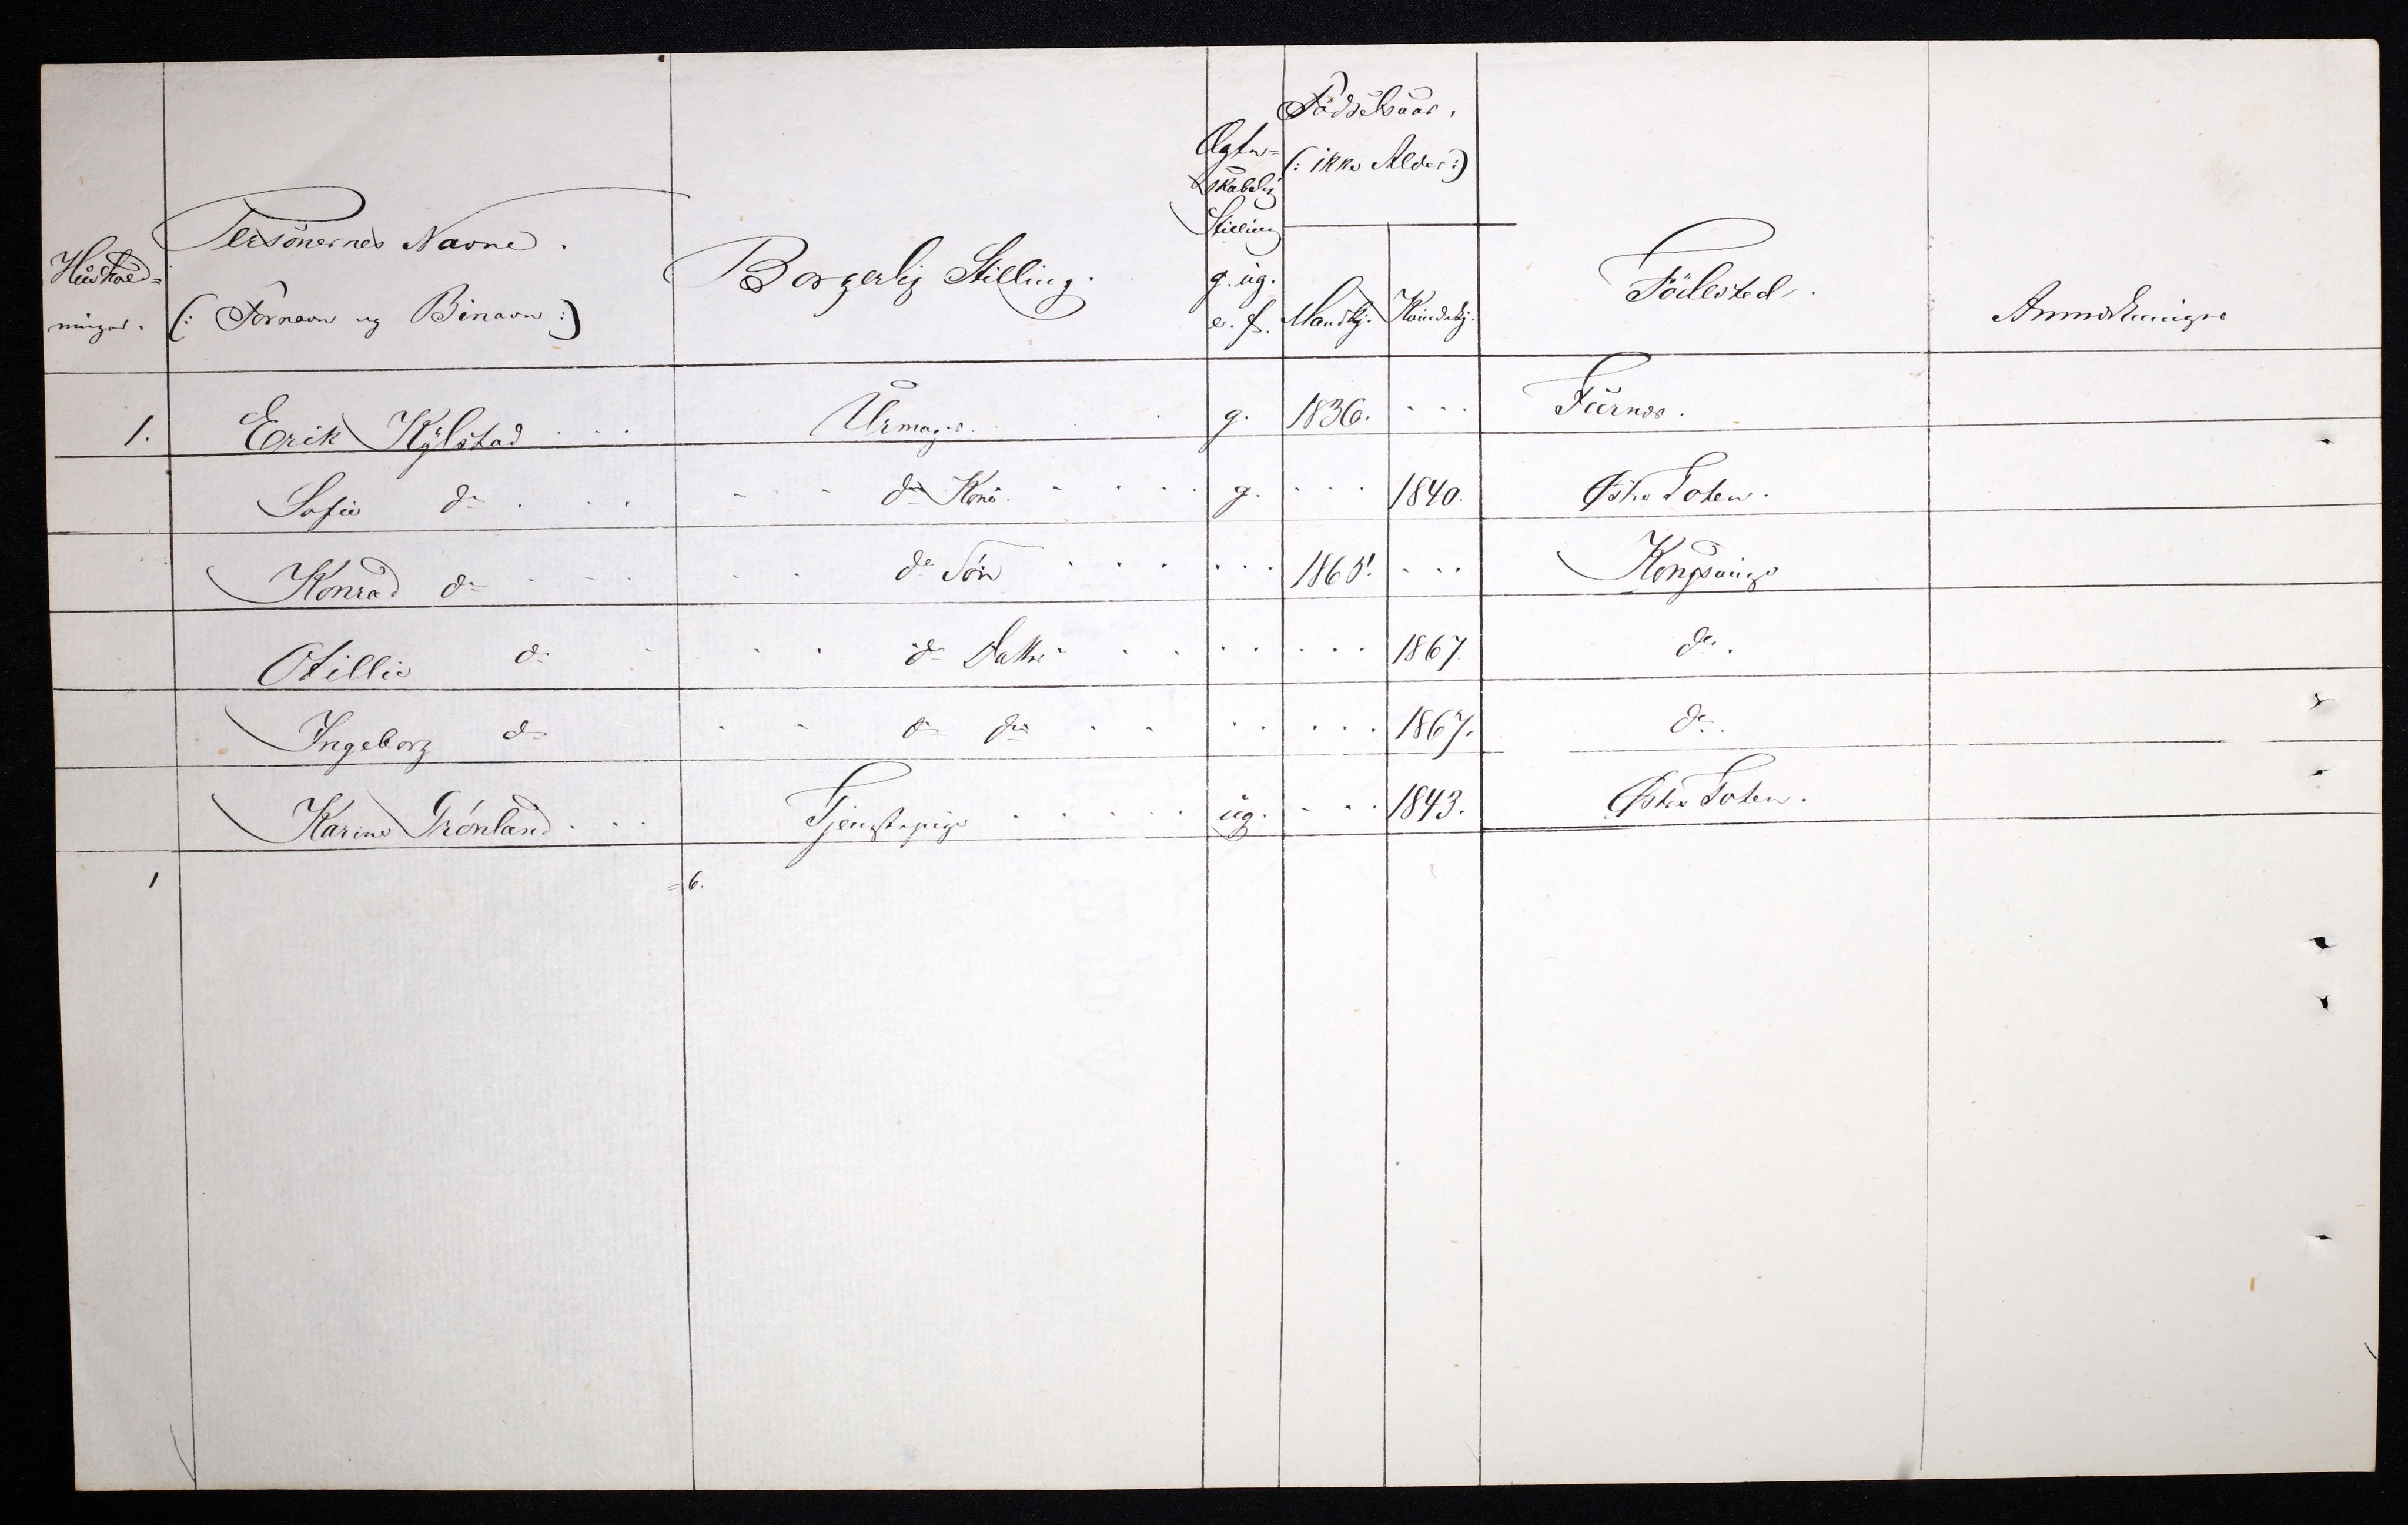 Huushold-
ninger.
Personernes Navne.
(: Fornavn og Binavn :)
Borgerlig Stilling.
Ægte-
skabelig
Stilling
g. ug.
e. f.
Fødselsaar.
(: ikke Alder :)
Mandkj. Kvindekj.
Fødested.
Anmærkninger
1. Erik Kylstad Urmager g. 1836. Furnes.
Sofie do do Kone. g. 1840. Østre Toten.
Konrad do do Søn 1865. Kongsvinger
Otillie do do Datter 1867. do.
Ingeborg do do do 1867. do.
Karine Grönland Tjenestepige ug. 1843. Østre Toten.
1 = 6.